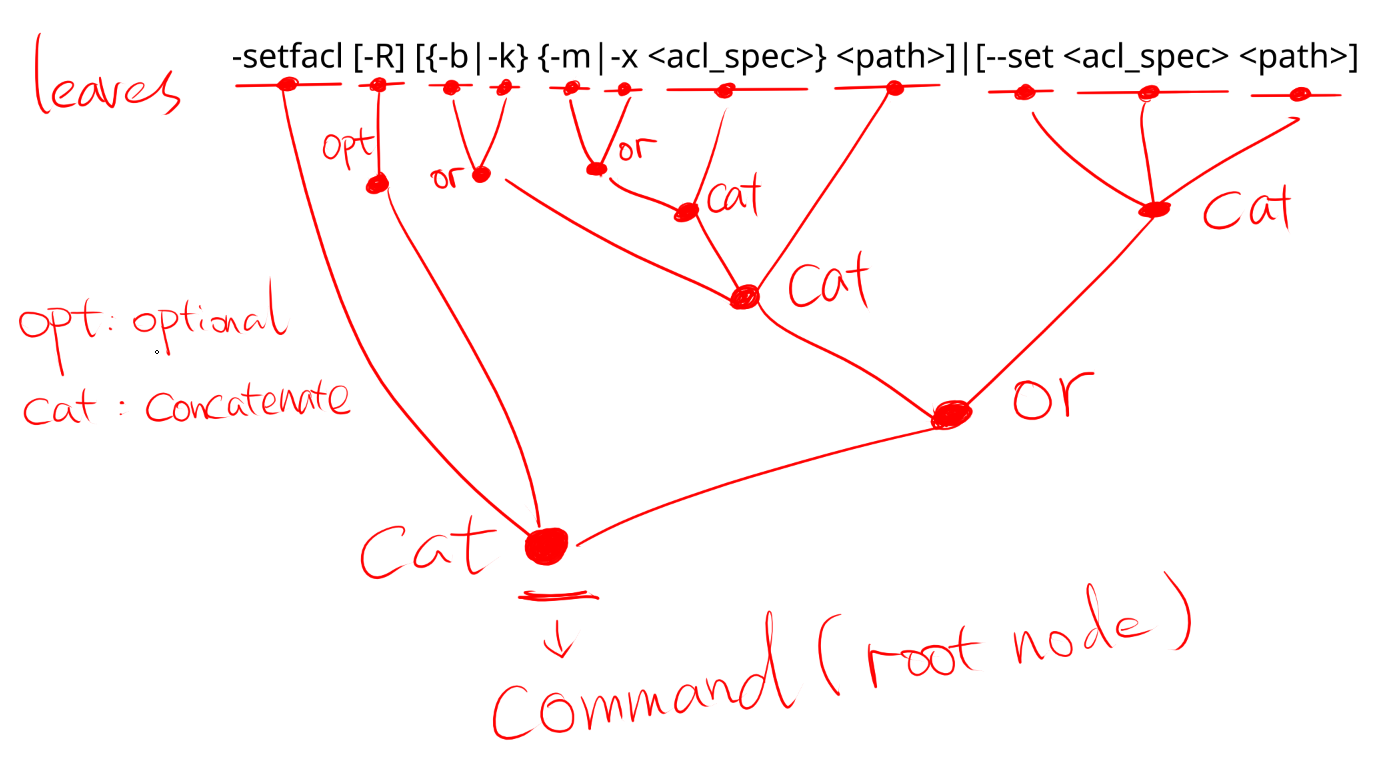 -setfacl [-R] [{-b|-k} {-m|-x <acl_spec>} <path>]|[--set <acl_spec> <path>]
leaves
opt
or
or
cat
cat
cat
opt: optional
cat : concatenate
or
cat
command (root node)